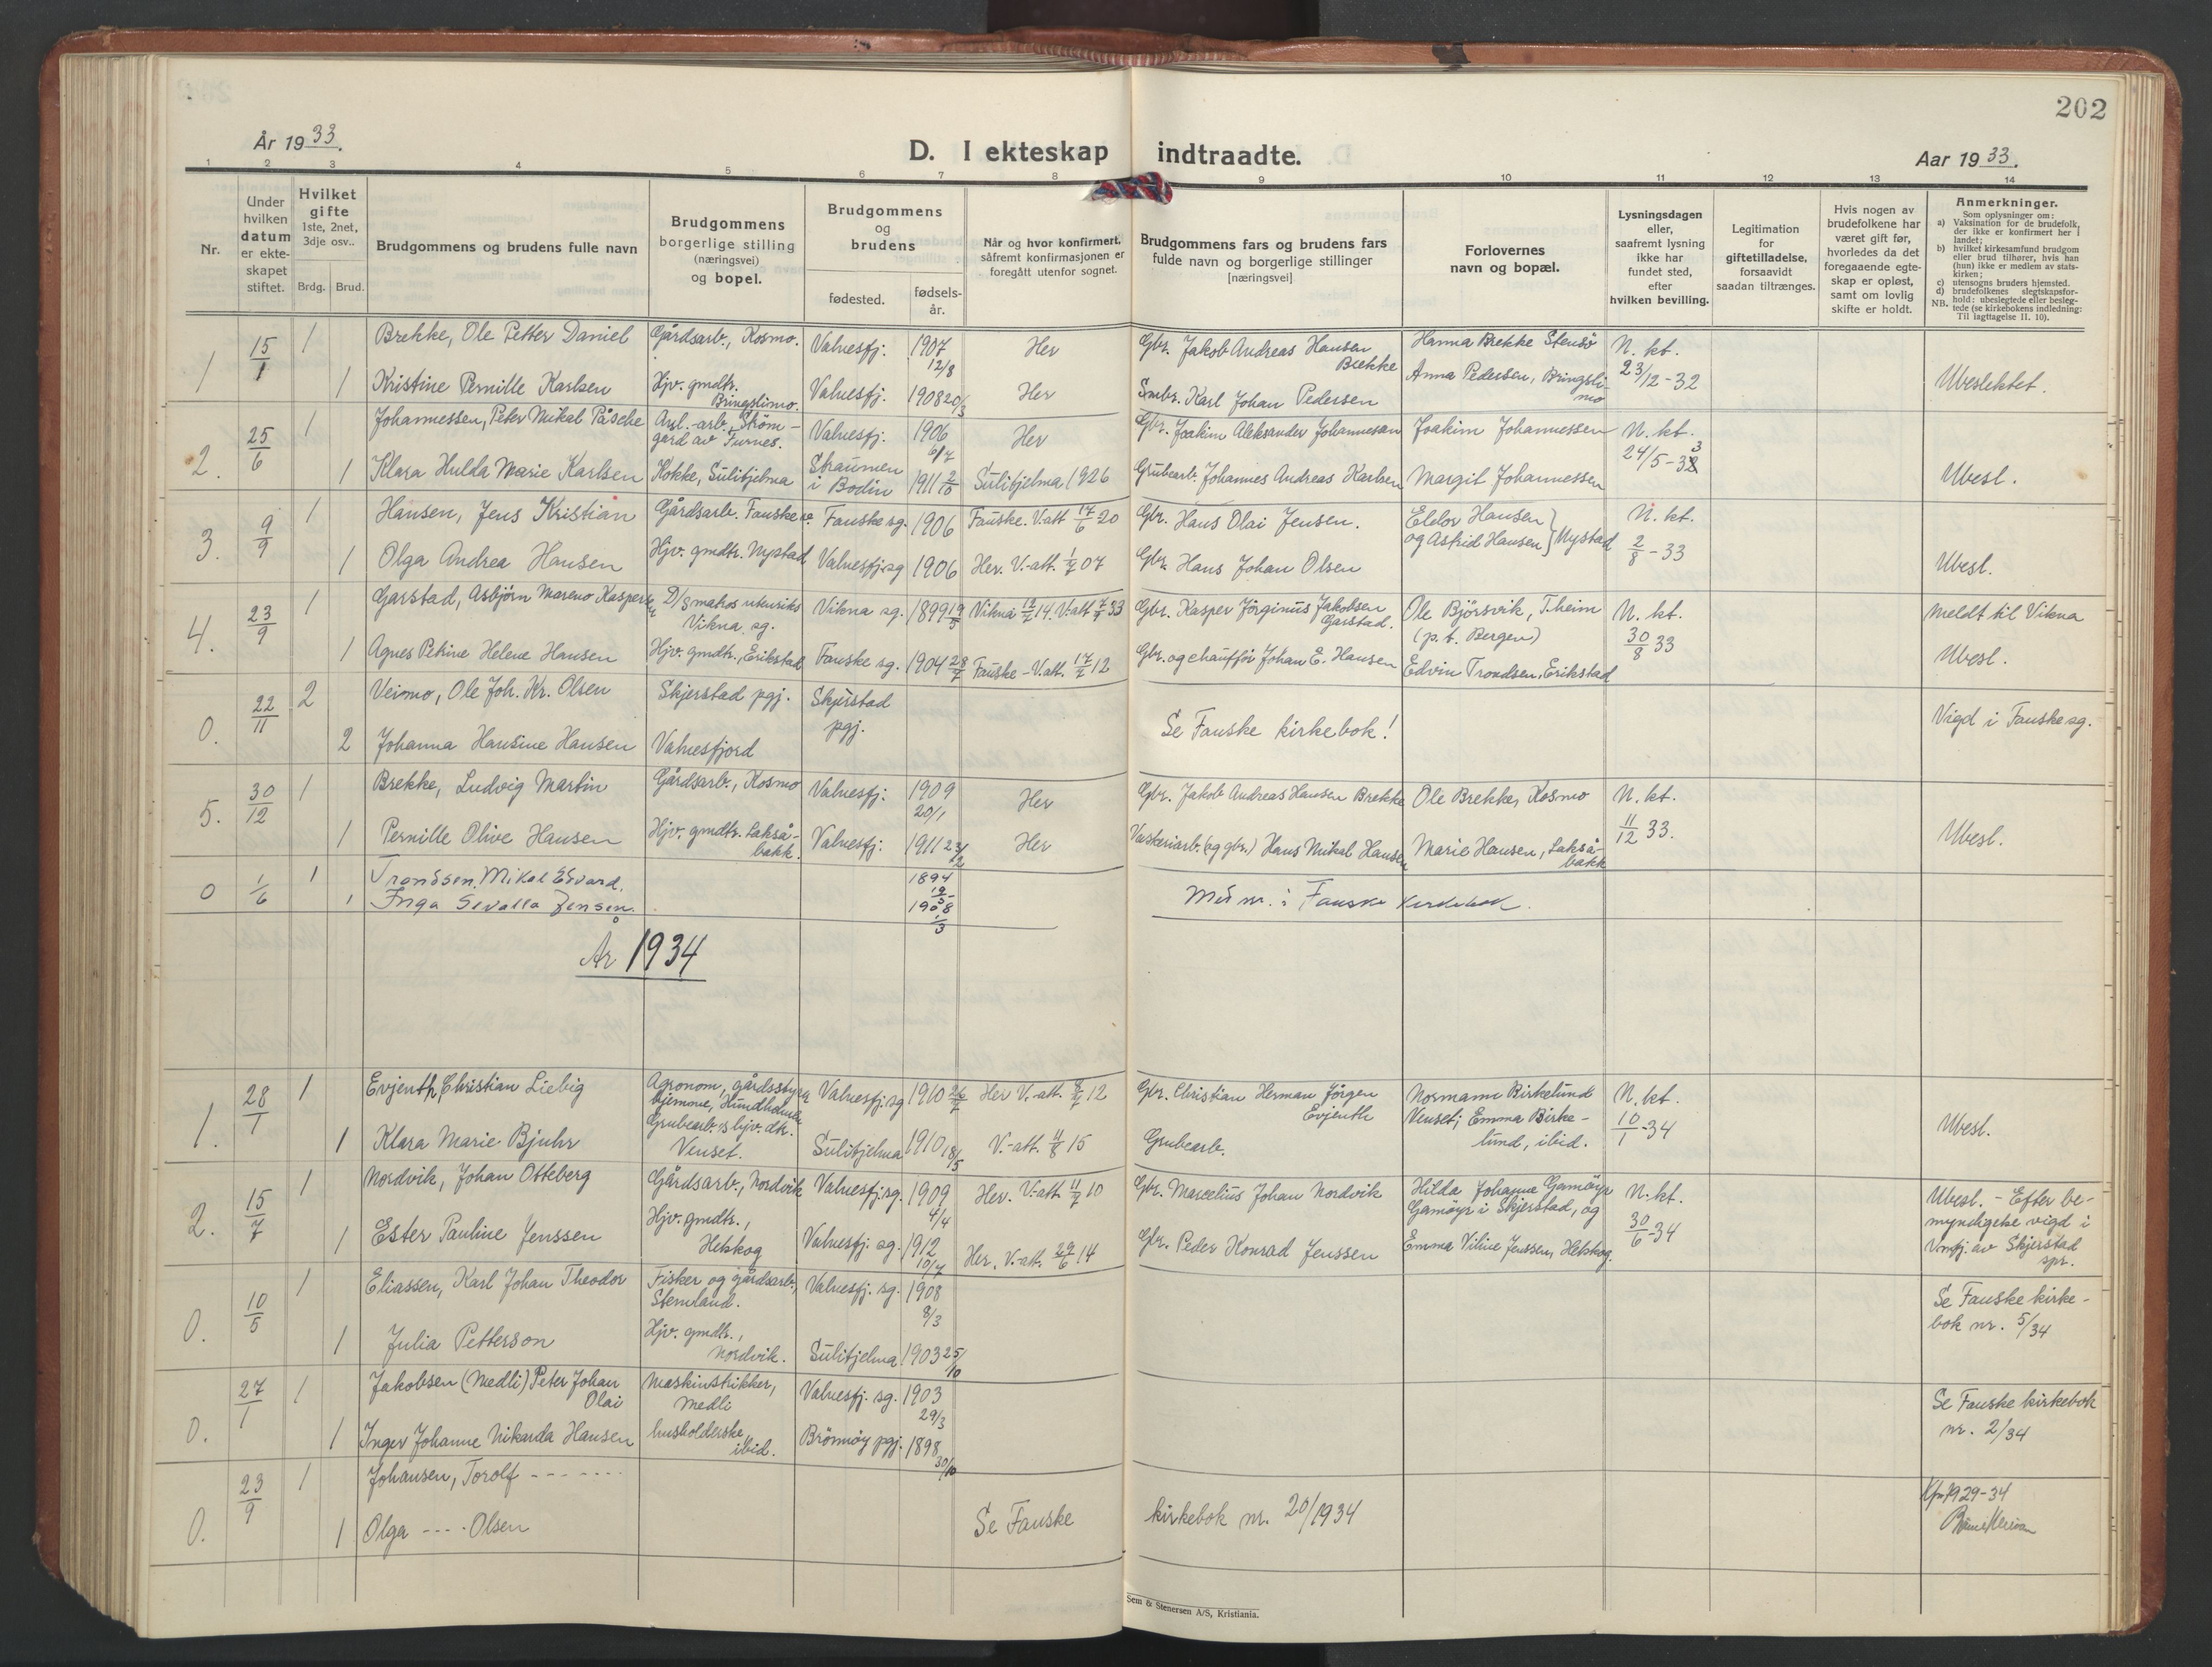 202
År 1933.
D. I ekteskap indtraadte.
Aar 1933.
1 2 3 4 5 6 7 8 9 10 11 12 13 14
Nr.
Under hvilken datum er ekte-skapet stiftet.
Hvilket gifte 1ste, 2net, 3dje osv..
Brdg. Brud.
Brudgommens og brudens fulle navn
Brudgommens borgerlige stilling (næringsvei) og bopel.
Brudgommens og brudens
fødested.
fødsels-år.
Når og hvor konfirmert, såfremt konfirmasjonen er foregått utenfor sognet.
Brudgommens fars og brudens fars fulde navn og borgerlige stillinger [næringsvei]
Forlovernes navn og bopæl.
Lysningsdagen eller, saafremt lysning ikke har fundet sted, efter hvilken bevilling.
Legitimation for giftetilladelse, forsaavidt saadan tiltrænges.
Hvis nogen av brudefolkene har været gift før, hvorledes da det foregaaende egte-skap er opløst, samt om lovlig skifte er holdt.
Anmerkninger.
Som oplysninger om:
a) Vaksination for de brudefolk, der ikke er konfirmert her i landet;
b) hvilket kirkesamfund brudgom eller brud tilhører, hvis han (hun) ikke er medlem av stats-kirken;
c) utensogns bruders hjemsted.
d) brudefolkenes slegtskapsfor-hold: ubeslegtede eller besleg-tede (se kirkebokens indledning:
NB. Til Iagttagelse II. 10).
1 15/1 1 Brekke, Ole Petter Daniel Gårdsarb., Kosmo. Valnesfj. 1907 12/8 Her Gbr. Jakob Andreas Hansen Brekke Hanna Brekke Stensø N. kt.
1 Kristine Pernille Karlsen Hjv. gmdtr. Bringslimo. Valnesfj. 1908 20/3 Her Smbr. Karl Johan Pedersen Anna Pedersen, Bringslimo 23/12-32 Ubeslektet.
2. 25/6 1 Johannessen, Peter Mikal Påsche Anl.-arb. Strøm-gård av Furnes. Valnesfj. 1906 6/7 Her Gbr. Joakim Aleksander Johannessen Joakim Johannessen N. kt.
1 Klara Hulda Marie Karlsen Kokke, Sulitjelma Straumen i Bodin 1911 2/10 Sulitjelma 1926 Grubearb. Johannes Andreas Karlsen Margit Johannessen 24/5-33 Ubesl.
3. 9/9 1 Hansen, Jens Kristian Gårdsarb. Fauske Fauske sg. 1906 Fauske. V.att 17/6 20 Gbr. Hans Olai Jensen. Eldor Hansen N. kt.
1 Olga Andrea Hansen Hjv. gmdtr. Nystad Valnesfj. sg 1906 Her. V.-att. 1/7 07 Gbr. Hans Johan Olsen og Astrid Hansen } Nystad 2/8-33 Ubesl.
4. 23/9 1 Garstad, Asbjørn Mareno Kaspersen D/S matros utenriks Vikna sg. Vikna sg. 1899 19/5 Vikna 12/7 14. V.att 7/7 33 Gbr. Kasper Jörginus Jakobsen Garstad. Ole Björsvik, T.heim (p.t. Bergen) N. kt. meldt til Vikna
1 Agnes Petrine Helene Hansen Hjv. gmdtr., Erikstad Fauske sg. 1904 28/7 Fauske - V.att. 17/7 12 Gbr. og chauffør Johan E. Hansen Edvin Trondsen, Erikstad 30/8 33 Ubesl.
0. 22/11 2 Veimo, Ole Joh. Kr. Olsen Skjerstad pgj. Skjerstad pgj. Se Fauske kirkebok! Vigd i Fauske sg.
2 Johanna Hansine Hansen Valnesfjord
5. 30/12 1 Brekke, Ludvig Martin Gårdsarb., Kosmo Valnesfj. 1909 20/1 Her Gbr. Jakob Andreas Hansen Brekke Ole Brekke, Kosmo N. kt.
1 Pernille Olive Hansen Hjv. gmdtr. Lakså-bakk. Valnesfj. 1911 23/2 Her Vaskeriarb. (og gbr.) Hans Mikal Hansen Marie Hansen, Lakså-bakk 11/12 33. Ubesl.
0 1/6 1 Trondsen, Mikal Edvard. 1894 19/5
1 Inga Sevalla Jensen. 1908 1/3 Med nr. i Fauske kirkebok.
År 1934
1. 28/1 1 Evjenth, Christian Liebig Agronom, gårdsstyrer hjemme, Hundholmen Valnesfj. sg 1910 26/7 Her V.-att. 8/7 12 Gbr. Christian Herman Jörgen Evjenth Normann Birkelund N. kt.
1 Klara Marie Bjuhr Grubearb.s hjv. dtr. Venset. Sulitjelma 1910 18/5 V.-att. 11/8 15 Grubearb. Venset; Emma Birke-lund, ibid. 10/1-34 Ubesl.
2. 15/7 1 Nordvik, Johan Otteberg Gårdsarb., Nordvik Valnesfj. sg. 1909 4/4 Her. V.-att. 11/7 10 Gbr. Marcelius Johan Nordvik Hilda Johanna Gamöyr Gamöyr i Skjerstad, og N. kt.
1 Ester Pauline Jenssen Hjv. gmdtr., Helskog Valnesfj. sg. 1912 10/7 Her. V.-att. 29/6 14 Gbr. Peder Konrad Jenssen Emma Viline Jenssen, Helskog. 30/6-34 Ubesl. - Efter be-myndigelse vigd i Vnfj. av Skjerstad spr.
0. 10/5 1 Eliassen, Karl Johan Theodor Fisker og gårdsarb., Stemland. Valnesfj. sg. 1908 8/3 Se Fauske kirke-bok nr. 5/34
1 Julia Petterson Hjv. gmdtr., Nordvik. Sulitjelma 1903 25/10
0. 27/1 1 Jakobsen (Medli) Peter Johan Olai Maskinstrikker, Medli Valnesfj. sg. 1903 29/3 Se Fauske kirkebok nr. 2/34
1 Inger Johanne Nikarda Hansen husholderske, ibid. Brönnöy pgj. 1898 30/10
0. 23/9 1 Johansen, Torolf - - - - - - -
1 Olga - - - - Olsen Se Fauske kirkebok nr. 20/1934 1929-34
Sem & Stenersen A/S, Kristiania.